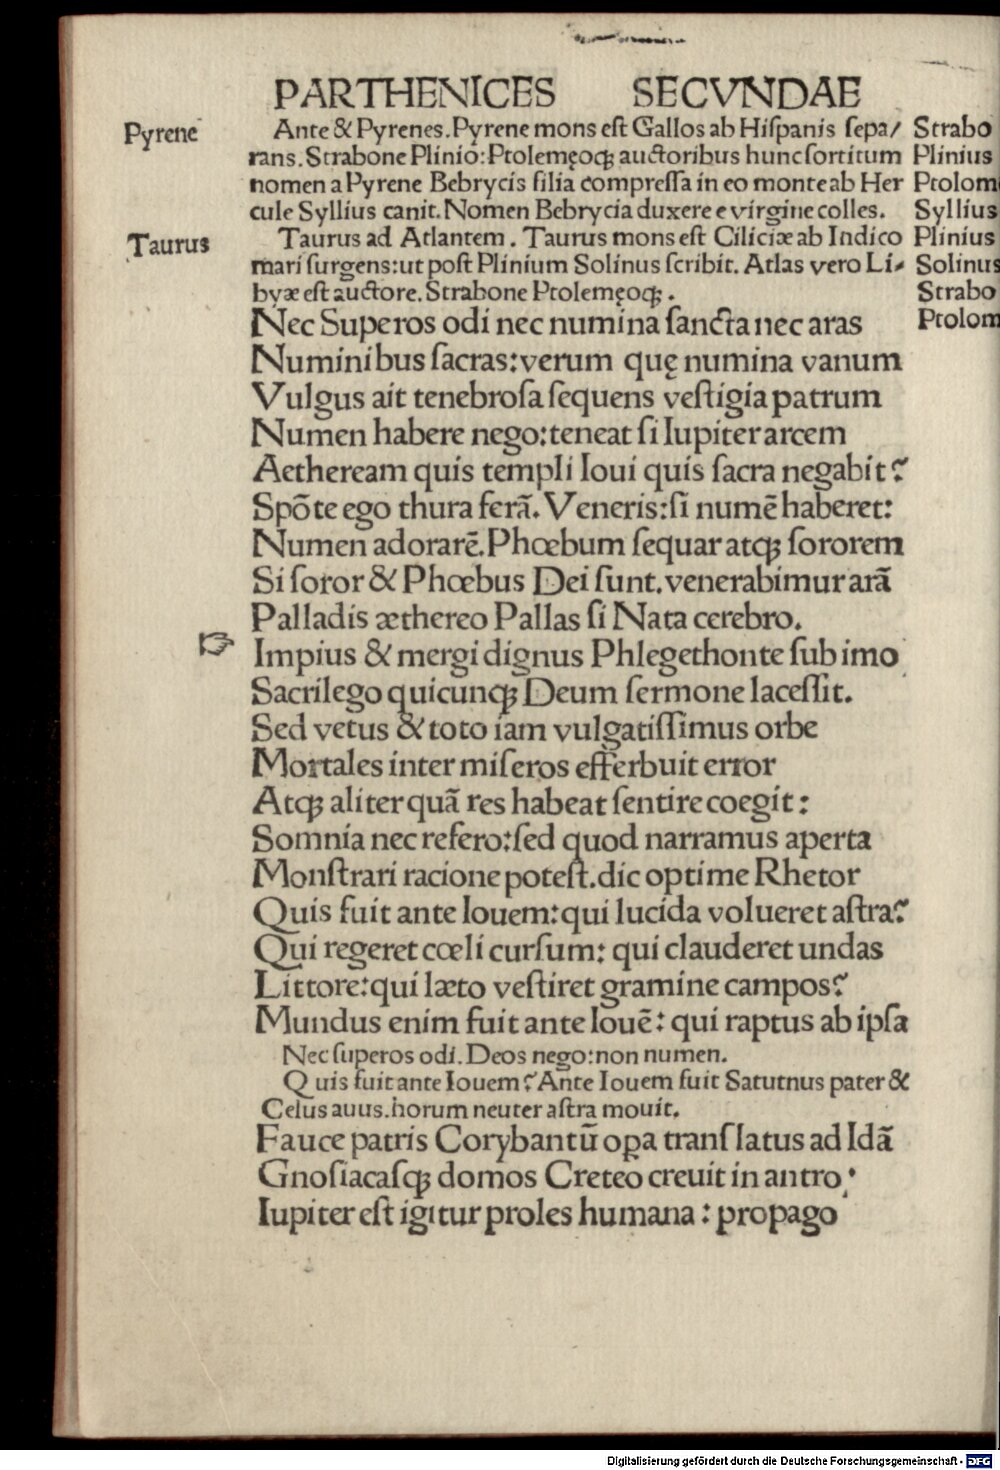 PARTHENICES SECVNDAE
Pyrene
Ante & Pyrenes. Pyrene mons eſt Gallos ab Hiſpanis ſepa/
Strabo
rans. Strabone Plinio: Ptolemęoqꝫ auctoribus hunc ſortitum
Plinius
nomen a Pyrene Bebrycis filia compreſſa in eo monte ab Her
Ptolom
cule Syllius canit. Nomen Bebrycia duxere e virgine colles.
Syllius
Taurus
Taurus ad Atlantem. Taurus mons eſt Ciliciæ ab Indico
Plinius
mari ſurgens: ut poſt Plinium Solinus ſcribit. Atlas vero Li/
Solinus
byæ eſt auctore. Strabone Ptolemęoqꝫ.
Strabo
Ptolom
Nec Superos odi nec numina ſancta nec aras
Numinibus ſacras: verum quę numina vanum
Vulgus ait tenebroſa ſequens veſtigia patrum
Numen habere nego: teneat ſi Iupiter arcem
Aetheream quis templi Ioui quis ſacra negabit?
Spōte ego thura ferā. Veneris: ſi numē haberet:
Numen adorarē. Phœbum ſequar atqꝫ ſororem
Si ſoror & Phœbus Dei ſunt. venerabimur arā
Palladis æthereo Pallas ſi Nata cerebro.
☞ Impius & mergi dignus Phlegethonte ſub imo
Sacrilego quicunqꝫ Deum ſermone laceſſit.
Sed vetus & toto iam vulgatiſſimus orbe
Mortales inter miſeros efferbuit error
Atqꝫ aliter quā res habeat ſentire coegit:
Somnia nec refero: ſed quod narramus aperta
Monſtrari racione poteſt. dic optime Rhetor
Quis fuit ante Iouem: qui lucida volueret aſtra?
Qui regeret cœli curſum: qui clauderet undas
Littore: qui læto veſtiret gramine campos?
Mundus enim fuit ante Iouē: qui raptus ab ipſa
Nec ſuperos odi. Deos nego: non numen.
Quis fuit ante Iouem? Ante Iouem fuit Satutnus pater &
Celus auus. horum neuter aſtra mouit.
Fauce patris Corybantū oꝑa tranſlatus ad Idā
Gnoſiacaſqꝫ domos Creteo creuit in antro.
Iupiter eſt igitur proles humana: propago
Digitalisierung gefördert durch die Deutsche Forschungsgemeinschaft - DFG